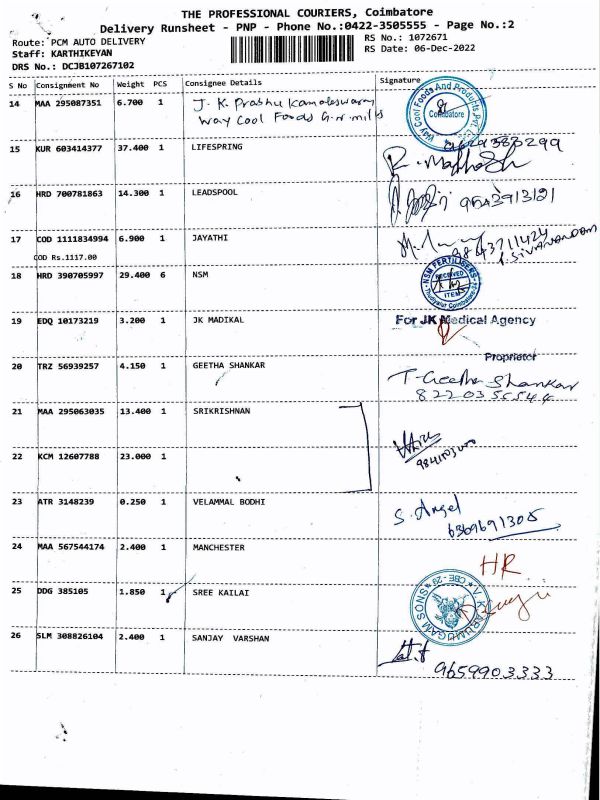 THE PROFESSIONAL COURIERS, Coimbatore
Delivery Runsheet - PNP - Phone No.:0422-3505555 - Page No.:2
Route: PCM AUTO DELIVERY
Staff: KARTHIKEYAN
DRS No.: DCJB107267102
RS No.: 1072671
RS Date: 06-Dec-2022
S No Consignment No Weight PCS Consignee Details Signature
14 MAA 295087351 6.700 1 J. K Prabhu Kamaleswaran
Way Cool Foods G.n.mills
Way Cool Foods And Products Pvt. Ltd.
Coimbatore
15 KUR 603414377 37.400 1 LIFESPRING
16 HRD 700781863 14.300 1 LEADSPOOL 9543913121
17 COD 1111834994 6.900 1 JAYATHI 9843711424
COD Rs.1117.00
18 HRD 390705997 29.400 6 NSM NSM FERTILISERS
RECEIVED
ITEM
19 EDQ 10173219 3.200 1 JK MADIKAL For JK Medical Agency
Proprietor
20 TRZ 56939257 4.150 1 GEETHA SHANKAR T. Geetha Shankar
21 MAA 295063035 13.400 1 SRIKRISHNAN
22 KCM 12607788 23.000 1
23 ATR 3148239 0.250 1 VELAMMAL BODHI S. Angel
6369691305
24 MAA 567544174 2.400 1 MANCHESTER HR
25 DDG 385105 1.850 1 SREE KAILAI
26 SLM 308826104 2.400 1 SANJAY VARSHAN
9659903333